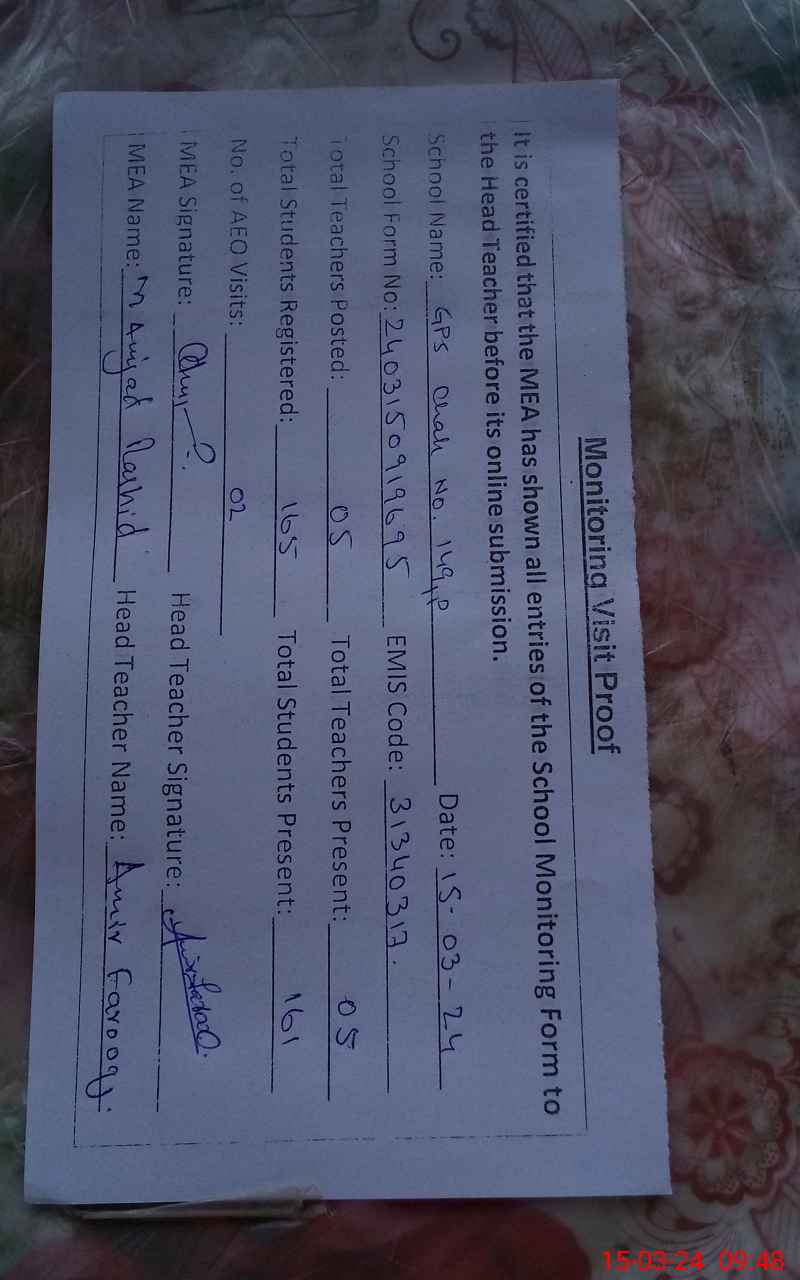 Monitoring Visit Proof
It is certified that the MEA has shown all entries of the School Monitoring Form to
the Head Teacher before its online submission.
School Name: GPS Chak No. 149,P Date: 15-03-24
School Form No: 2403150919695 EMIS Code: 31340317.
Total Teachers Posted: 05 Total Teachers Present: 05
Total Students Registered: 165 Total Students Present: 161
No. of AEO Visits: 02
MEA Signature: Head Teacher Signature:
MEA Name: M Amjad Rashid Head Teacher Name: Amir Farooq
15-03-24 09:48